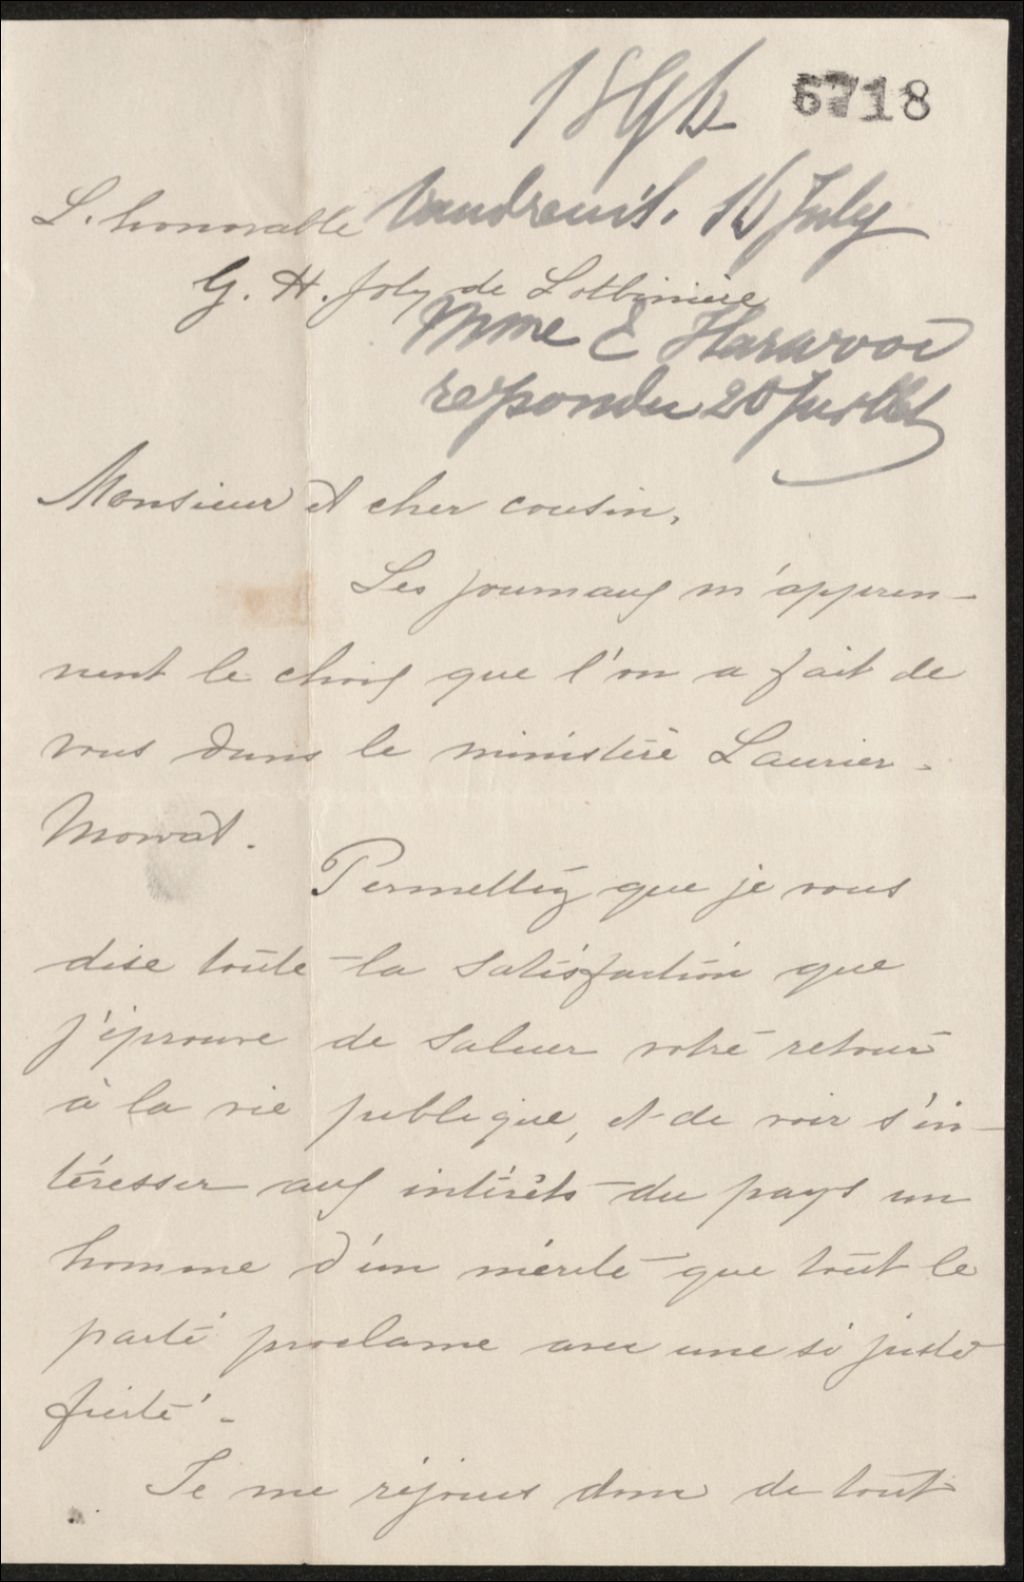 1896
6718
L'honorable Vaudreuil. 16 July
G. H. Joly de Lotbinière
Mme E Harwood
répondu 20 Juillet
Monsieur et cher cousin,
Les journaux m'appren-
nent le choix que l'on a fait de
vous dans le ministère Laurier-
Mowat.
Permettez que je vous
dise toute la satisfaction que
j'éprouve de saluer votre retour
à la vie publique, et de voir s'in-
téresser aux intérêts du pays un
homme d'un mérite que tout le
parti proclame avec une si juste
fierté.
Je me réjouis donc de tout